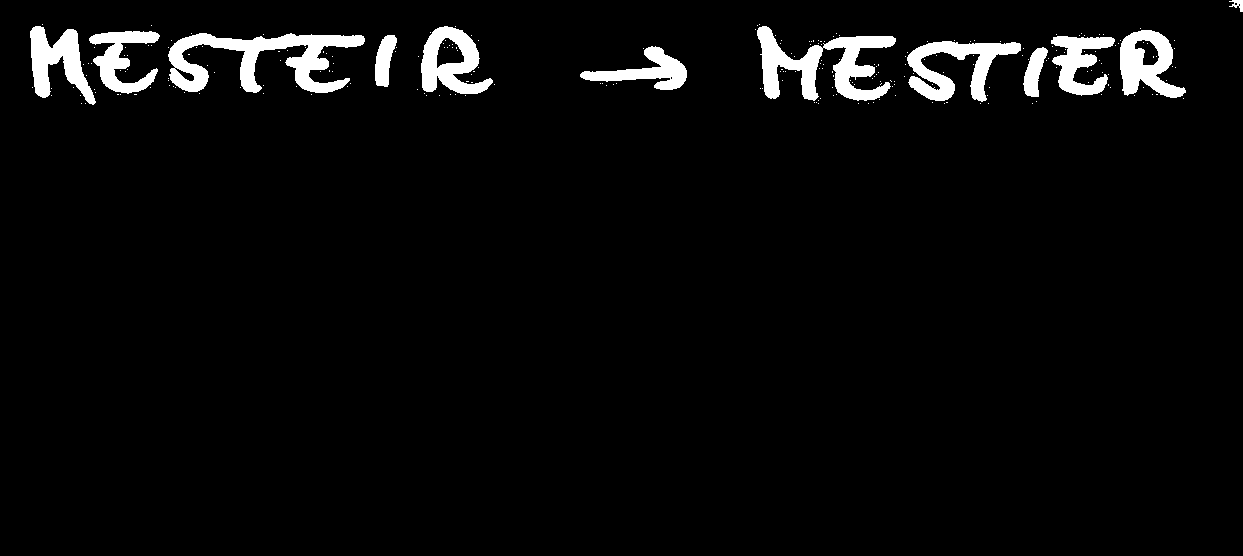 MESTEIR → MESTIER